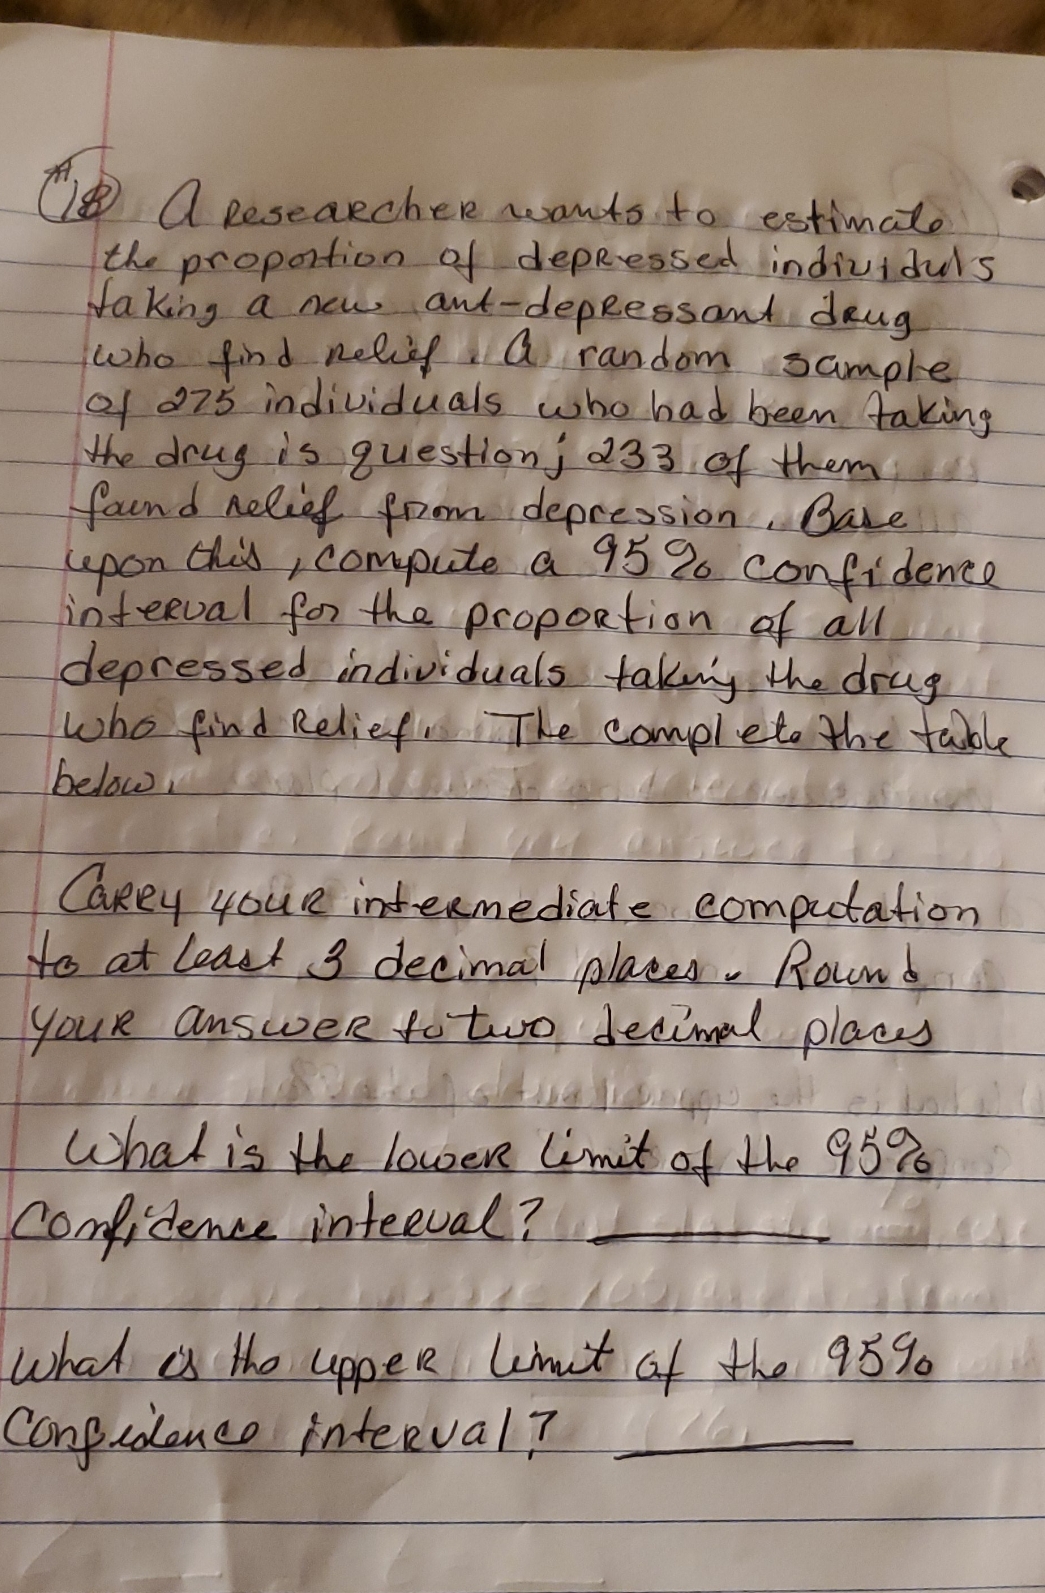 #18 A Researcher wants to estimate
the proportion of depressed individuls
taking a new ant-depressant drug
who find relief. A random sample
of 275 individuals who had been taking
the drug is question; 233 of them
found relief from depression. Base
upon this, compute a 95% confidence
interval for the proportion of all
depressed individuals taking the drug
who find Relief. The complete the table
below.
Carry your intermediate computation
to at least 3 decimal places. Round
your answer to two decimal places
What is the lower limit of the 95%
Confidence interval? ________
What is the upper limit of the 95%
Confidence interval? ________